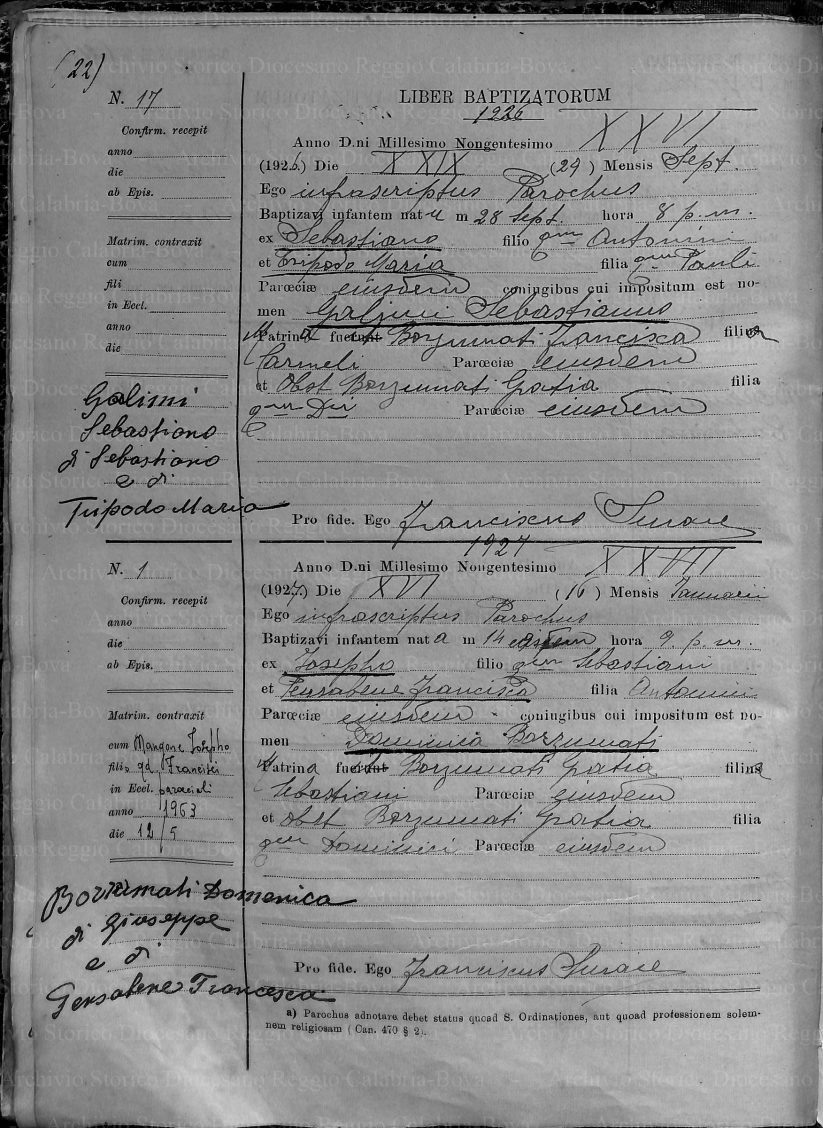 (22)
N. 17
Confirm. recepit
anno
die
ab Epis.
Matrim. contraxit
cum
fili
in Eccl.
anno
die
Galimi
Sebastiano
di Sebastiano
e di
Tripodo Maria
LIBER BAPTIZATORUM
1926
Anno D.ni Millesimo Nongentesimo XXVI
(1926.) Die XXIX (29) Mensis Sept.
Ego infrascriptus Parochus
Baptizavi infantem nat u m 28 Sept. hora 8 p. m.
ex Sebastiano filio qm Antonini
et Tripodo Maria filia qm Pauli
Parœciæ eiusdem coniugibus cui impositum est no-
men Galimi Sebastianus
Matrina fuerunt Borzumati Francisca filia
Carmeli Parœciæ eiusdem
et Obst Borzumati Gratia filia
qm Parœciæ eiusdem
Pro fide. Ego Franciscus Surace
N. 1
Confirm. recepit
anno
die
ab Epis.
Matrim. contraxit
cum Mangone Josepho
filio qd. Francisci
in Eccl. paraciali
anno 1963
die 12/5
Borzumati Domenica
di Giuseppe
e di
Pensabene Francesca
1927
Anno D.ni Millesimo Nongentesimo XXVII
(1927.) Die XVI (16) Mensis Januarii
Ego infrascriptus Parochus
Baptizavi infantem nat a m 14 eiusdem hora 9 p. m.
ex Josepho filio qm Sebastiani
et Pensabene Francisca filia Antonini
Parœciæ eiusdem coniugibus cui impositum est no-
men Dominica Borzumati
Matrina fuerunt Borzumati Gratia filia
Sebastiani Parœciæ eiusdem
et obst Borzumati Gratia filia
qm Dominici Parœciæ eiusdem
Pro fide. Ego Franciscus Surace
a) Parochus adnotare debet status quoad S. Ordinationes, aut quoad professionem solem-
nem religiosam (Can. 470 § 2).
Archivio Storico Diocesano Reggio Calabria-Bova